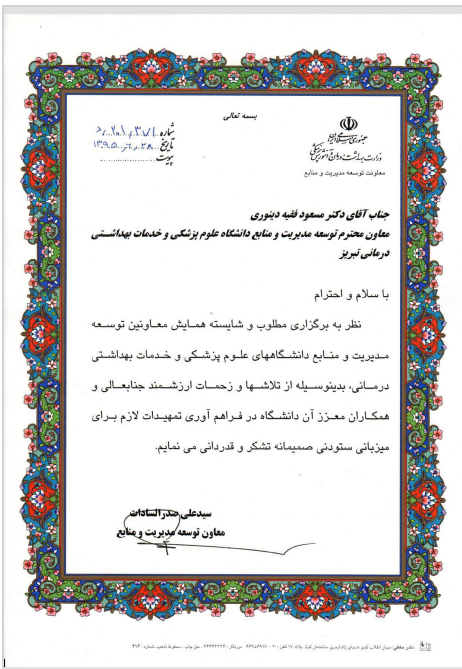 بسمه تعالی
جمهوری اسلامی ایران
وزارت بهداشت، درمان و آموزش پزشکی
معاونت توسعه مدیریت و منابع
شماره
تاریخ
پیوست
جناب آقای دکتر مسعود فقیه دینوری
معاون محترم توسعه مدیریت و منابع دانشگاه علوم پزشکی و خدمات بهداشتی
درمانی تبریز
با سلام و احترام
نظر به برگزاری مطلوب و شایسته همایش معاونین توسعه
مدیریت و منابع دانشگاههای علوم پزشکی و خدمات بهداشتی
درمانی، بدینوسیله از تلاشها و زحمات ارزشمند جنابعالی و
همکاران معزز آن دانشگاه در فراهم آوری تمهیدات لازم برای
میزبانی ستودنی صمیمانه تشکر و قدردانی می نمایم.
سیدعلی صدرالسادات
معاون توسعه مدیریت و منابع